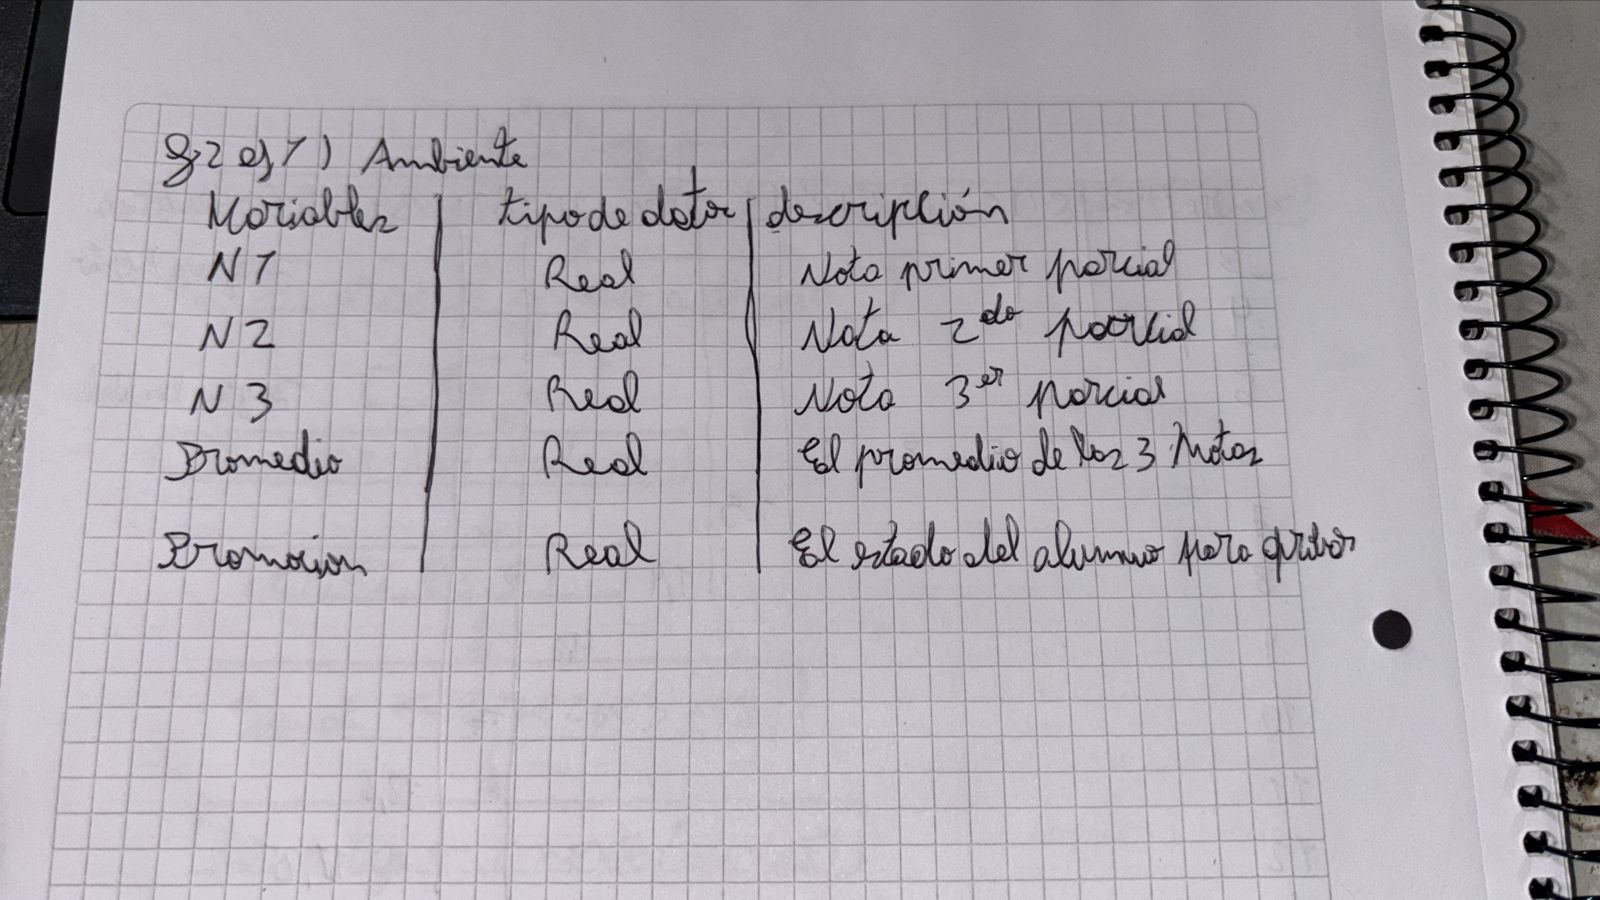 g2 ej 1) Ambiente
Variables | tipo de dator | descripción
N1 | Real | Nota primer parcial
N2 | Real | Nota 2do parcial
N3 | Real | Nota 3er parcial
Promedio | Real | El promedio de las 3 Notas
Promocion | Real | El estado del alumno para